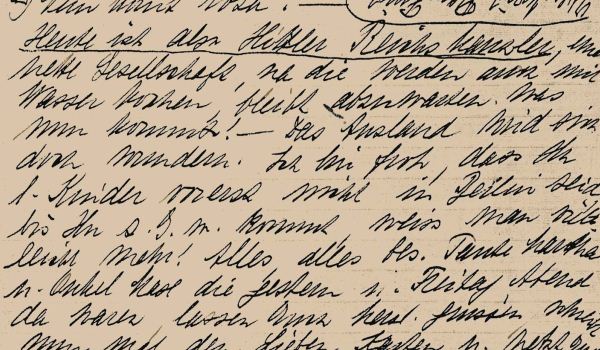 Heute ist also Hitler Reichskanzler, eine
nette Gesellschaft, na die werden auch mit
Wasser kochen, bleibt abzuwarten. was
nun kommt! — Das Ausland wird sich
doch wundern. Ich bin froh, dass Ihr
l. Kinder vorerst nicht in Berlin seid
bis Ihr s. G. w. kommt weiss man viel-
leicht mehr! Alles alles bes. Tante
u. Onkel die gestern u. Freitag Abend
da waren lassen Euch herzl. grüssen
nun mal den lieben